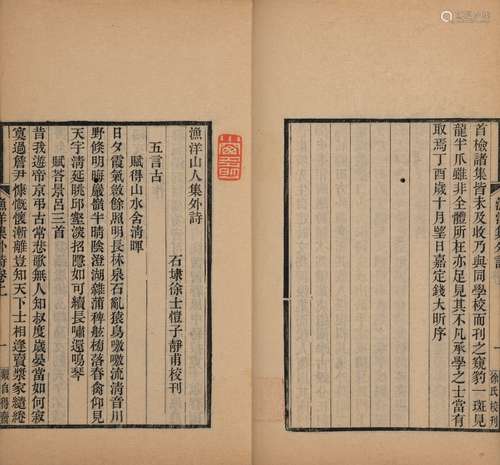 漁洋集外詩
一
徐氏校刊
首檢諸集皆未及收乃與同學校而刊之窺豹一斑見
龍半爪雖非全體所在亦足見其不凡承學之士當有
取焉丁酉歲十月望日嘉定錢大昕序
漁洋山人集外詩
石埭徐士愷子靜甫校刊
五言古
賦得山水含清暉
日夕霞氣斂餘照明長林泉石亂猿鳥嗷嗷流清音川
野倏明晦巖嶺半晴陰澄湖雜蒲稗舷柂落春禽仰見
天宇清延眺邱壑深招隱如可續長嘯還鳴琴
賦答景呂三首
昔我遊帝京弔古常悲歌無人知叔度歲晏當如何寂
寞過詹尹慷慨懷漸離豈知天下士相逢賣漿家繾綣
漁洋集外詩卷一
一
觀自得齋